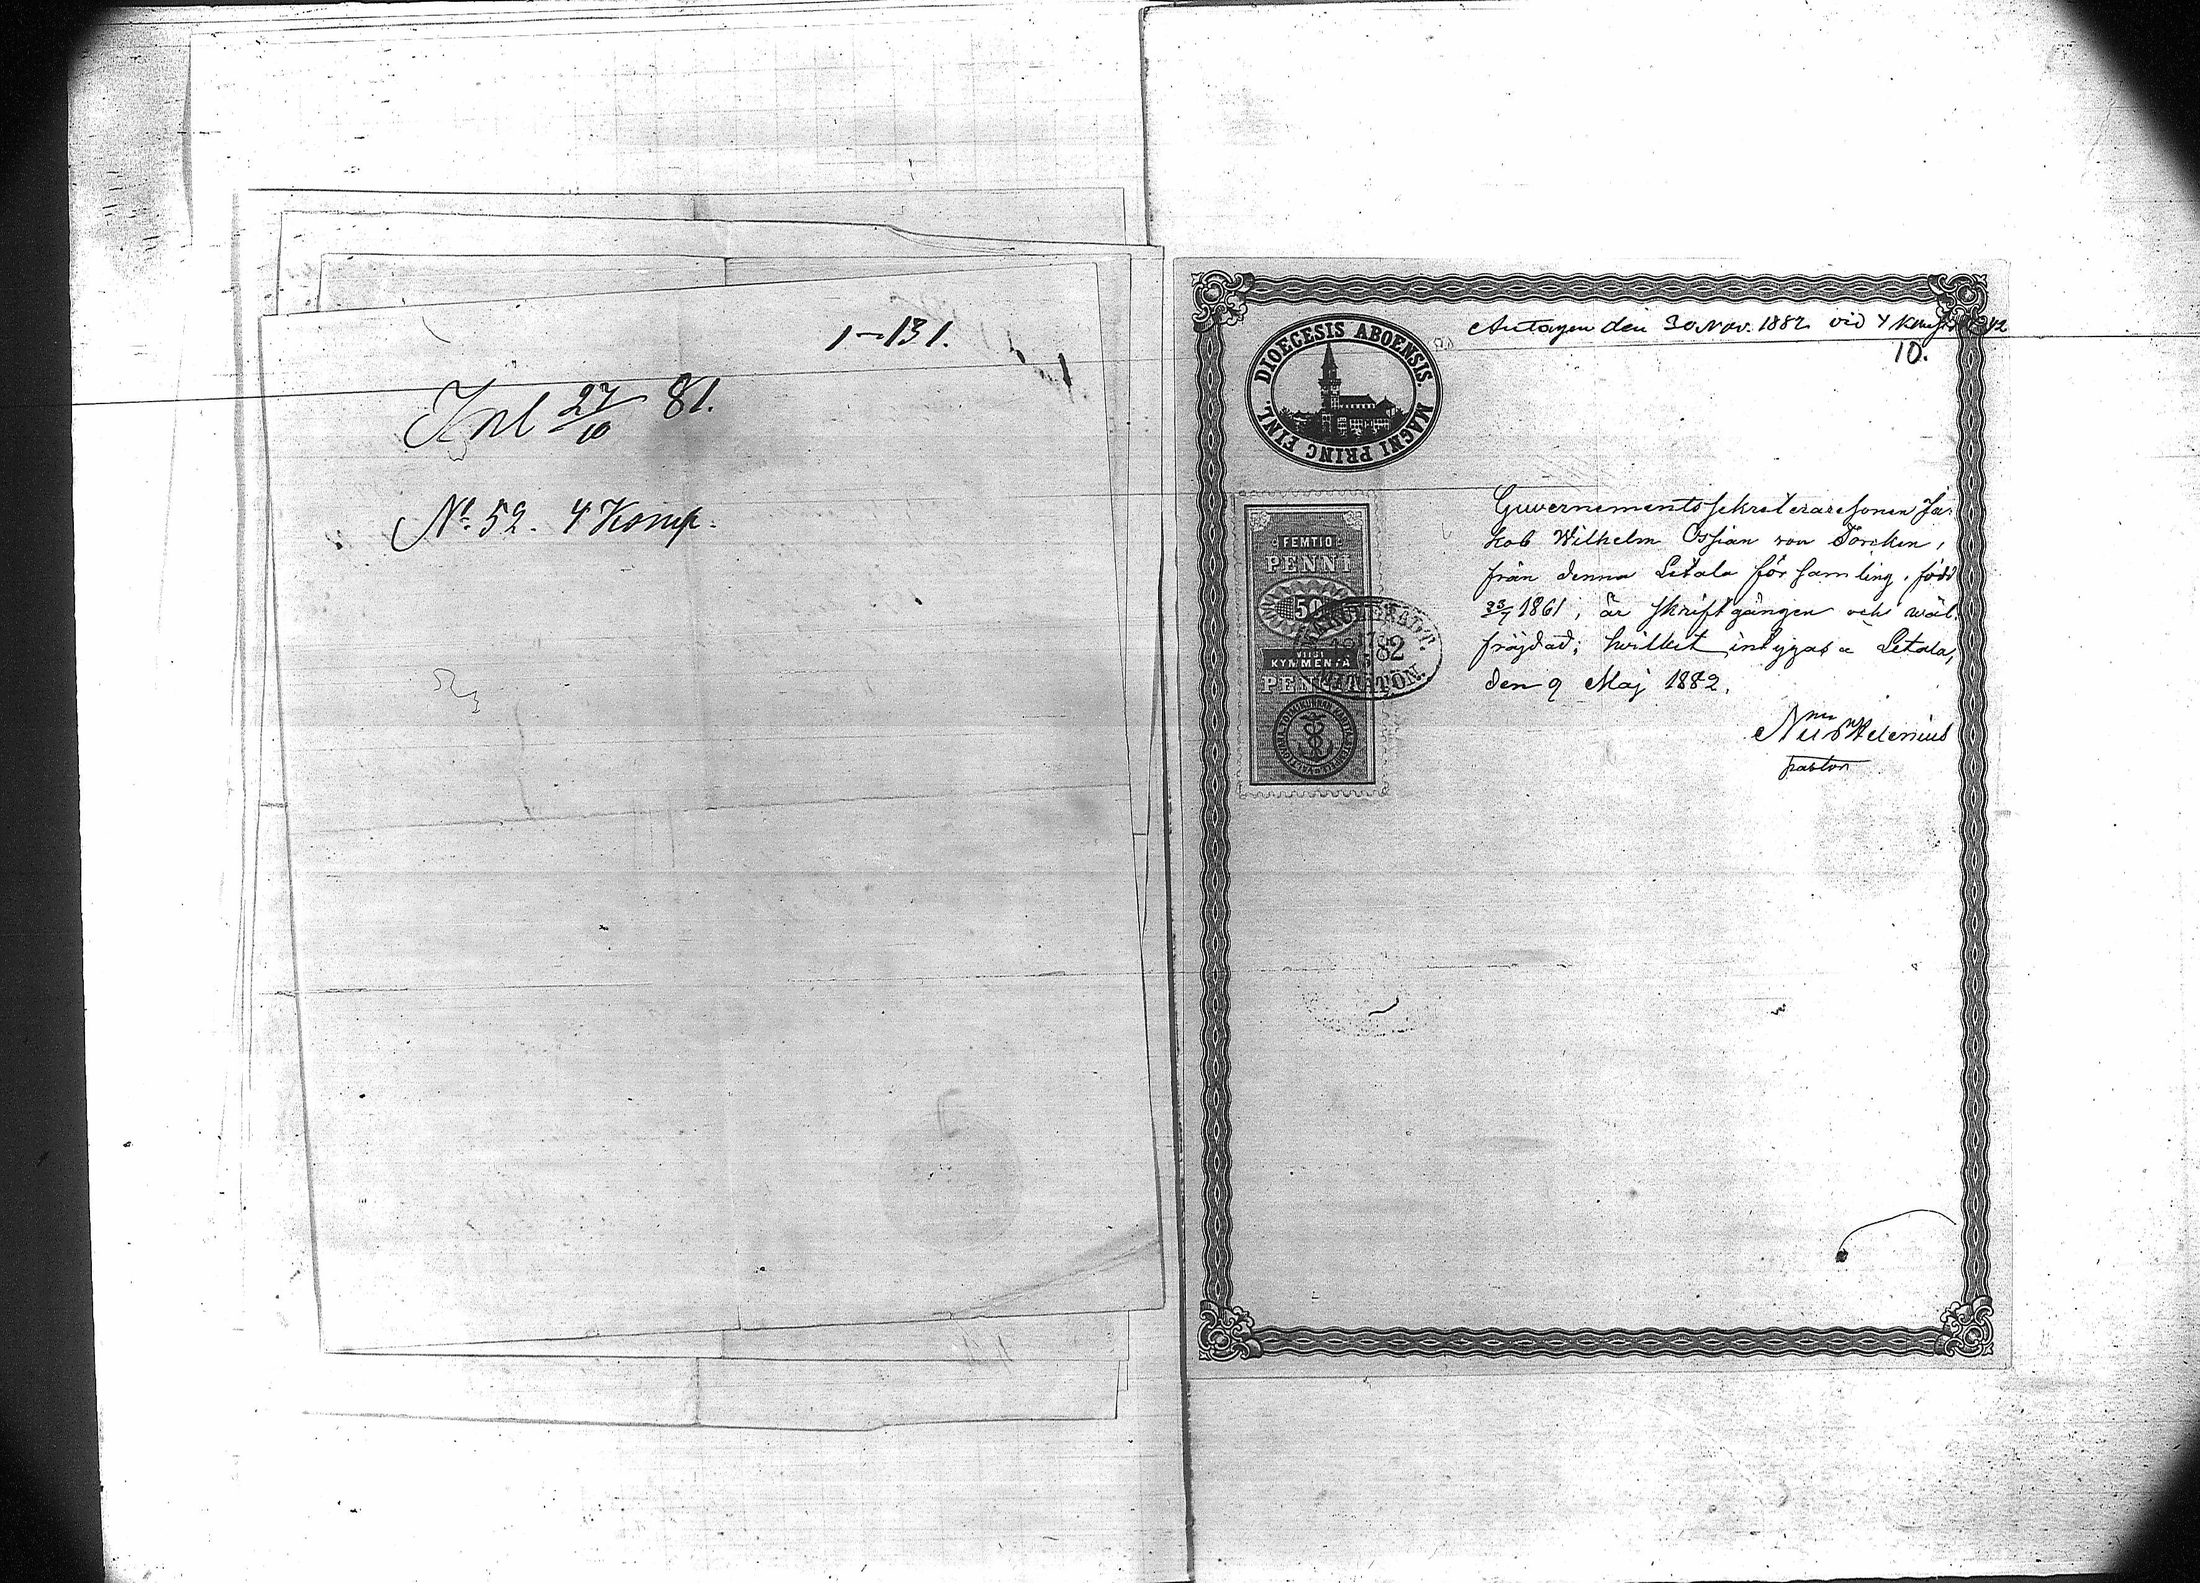 1-131.
Inl 27/10 81.
No 52. 4 Komp.
Antagen den 30 Nov. 1882 vid 4 Komp
10.
DIOECESIS ABOENSIS. MAGNI PRINC FINL.
FEMTIO
PENNI
50
VIISI
KYMMENTÄ
82
Guvernements sekreteraresonen Ja-
kob Wilhelm Ossian von
från denna Letala församling, född
1861, är skriftgången och wäl-
fräjdad; hvilket intygas Letala,
den 9 Maj 1882.
Helenius
pastor